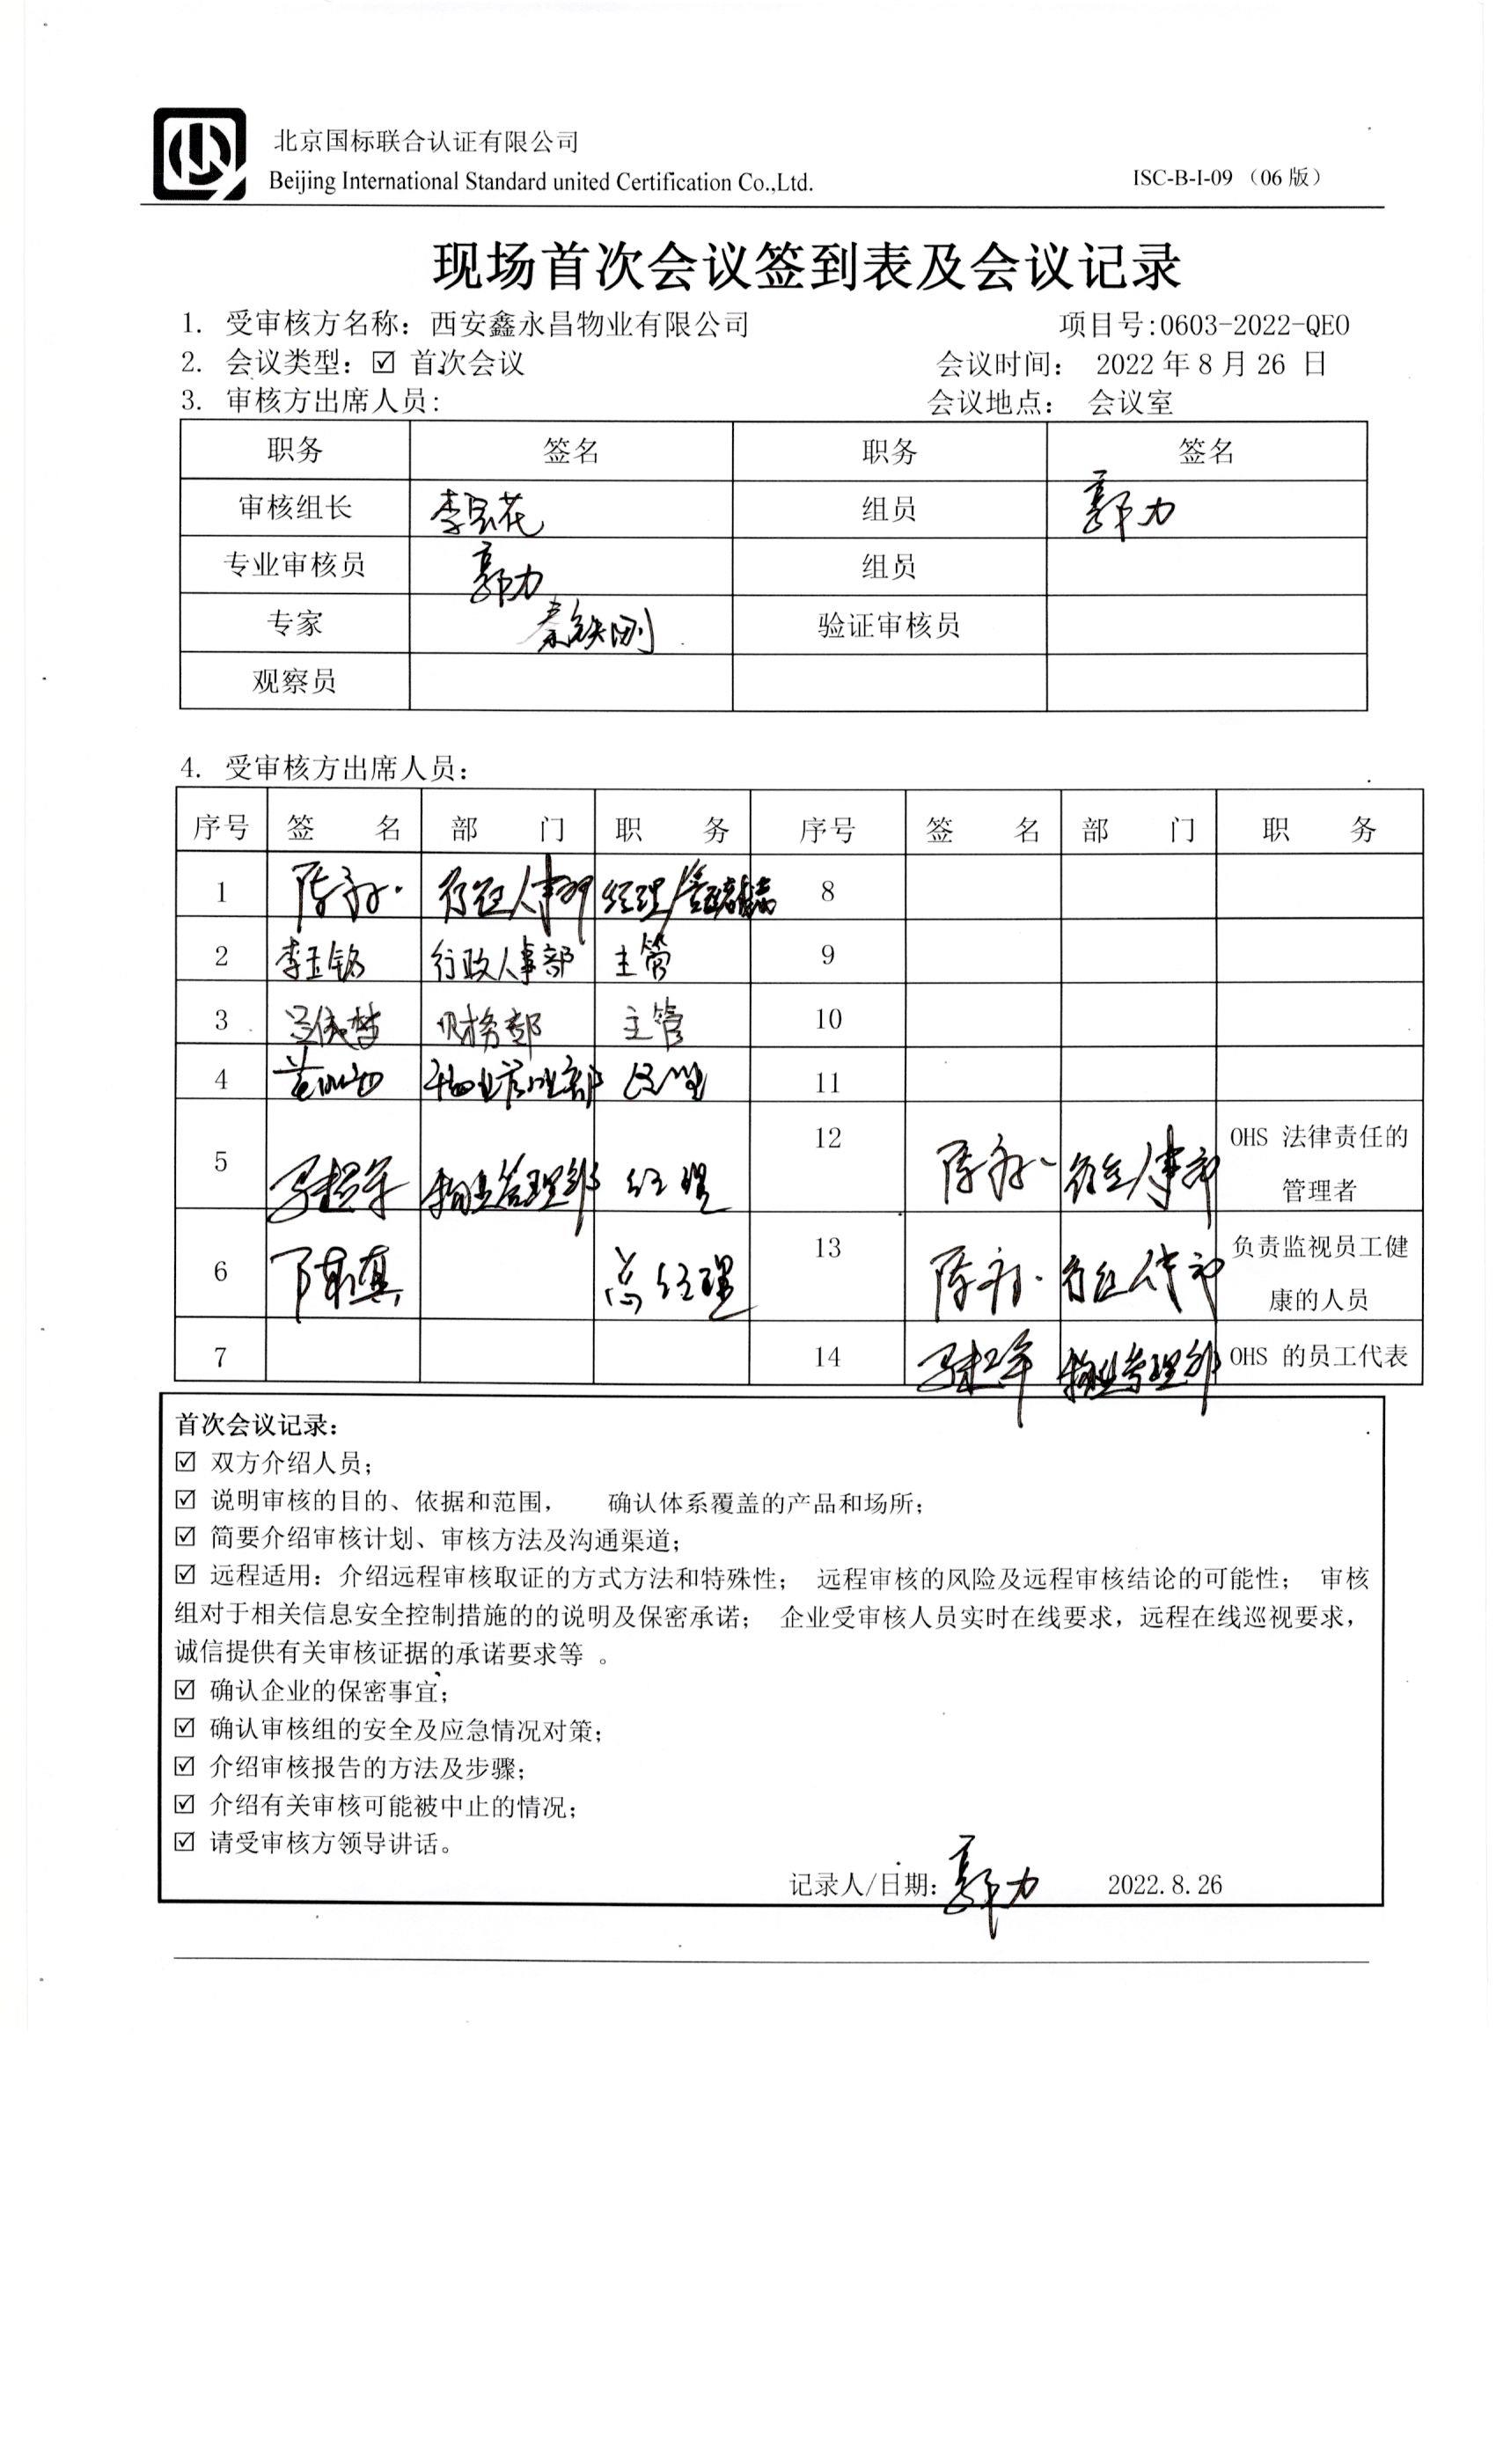 北京国标联合认证有限公司
Beijing International Standard united Certification Co.,Ltd.
ISC-B-I-09 (06 版)
现场首次会议签到表及会议记录
1. 受审核方名称：西安鑫永昌物业有限公司 项目号:0603-2022-QEO
2. 会议类型：☑ 首次会议 会议时间： 2022 年 8 月 26 日
3. 审核方出席人员: 会议地点： 会议室
职务 签名 职务 签名
审核组长 组员 郭力
专业审核员 郭力 组员
专家 秦铁刚 验证审核员
观察员
4. 受审核方出席人员：
序号 签 名 部 门 职 务 序号 签 名 部 门 职 务
1 行政人事部 经理/ 8
2 李玉铭 行政人事部 主管 9
3 财务部 主管 10
4 物业管理部 11
5 物业管理部 经理 12 行政人事部 OHS 法律责任的
管理者
6 总经理 13 行政人事部 负责监视员工健
康的人员
7 14 物业管理部 OHS 的员工代表
首次会议记录：
☑ 双方介绍人员；
☑ 说明审核的目的、依据和范围， 确认体系覆盖的产品和场所；
☑ 简要介绍审核计划、审核方法及沟通渠道；
☑ 远程适用：介绍远程审核取证的方式方法和特殊性； 远程审核的风险及远程审核结论的可能性； 审核
组对于相关信息安全控制措施的的说明及保密承诺； 企业受审核人员实时在线要求，远程在线巡视要求，
诚信提供有关审核证据的承诺要求等 。
☑ 确认企业的保密事宜；
☑ 确认审核组的安全及应急情况对策；
☑ 介绍审核报告的方法及步骤；
☑ 介绍有关审核可能被中止的情况；
☑ 请受审核方领导讲话。
记录人/日期：郭力 2022.8.26